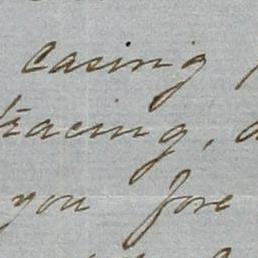 casing
tracing,
you fore